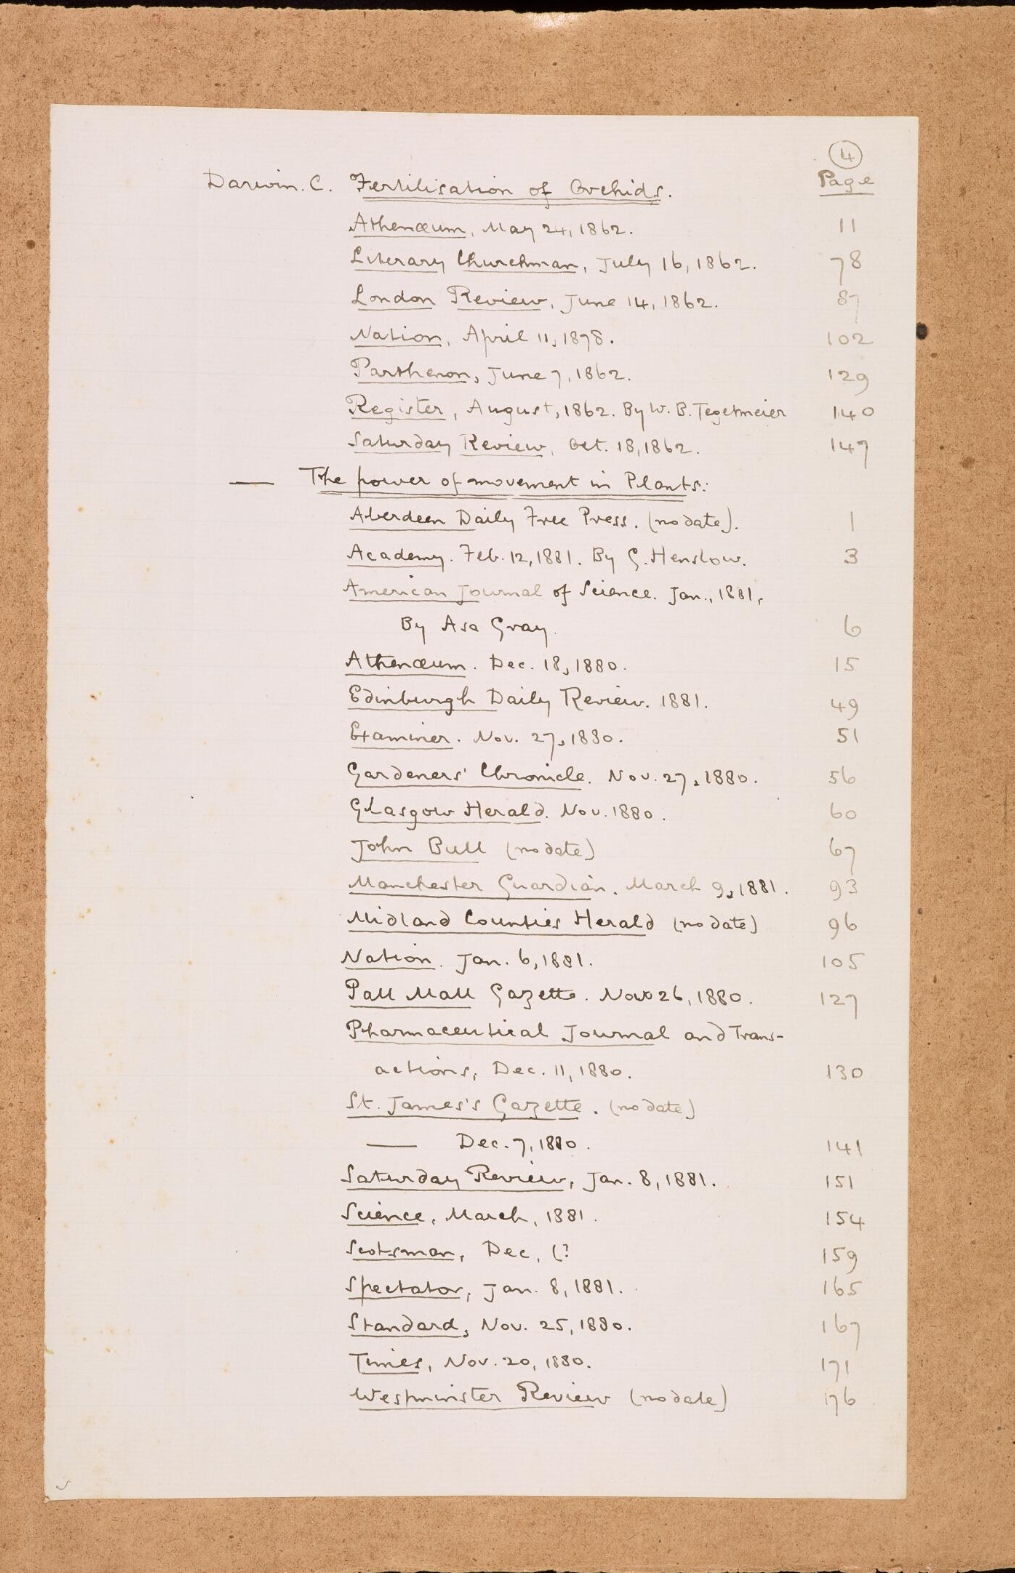 4
Darwin. C. Fertilisation of Orchids. Page
Athenæum, May 24, 1862. 11
Literary Churchman, July 16, 1862. 78
London Review, June 14, 1862. 87
Nation, April 11, 1878. 102
Parthenon, June 7, 1862. 129
Register, August, 1862. By W. B. Tegetmeier 140
Saturday Review, Oct. 18, 1862. 147
— The power of movement in Plants:
Aberdeen Daily Free Press. (no date). 1
Academy. Feb. 12, 1881. By G. Henslow. 3
American Journal of Science. Jan., 1881,
By Asa Gray. 6
Athenæum. Dec. 18, 1880. 15
Edinburgh Daily Review. 1881. 49
Examiner. Nov. 27, 1880. 51
Gardeners' Chronicle. Nov. 27, 1880. 56
Glasgow Herald. Nov. 1880. 60
John Bull (no date) 67
Manchester Guardian. March 9, 1881. 93
Midland Counties Herald (no date) 96
Nation. Jan. 6, 1881. 105
Pall Mall Gazette. Nov. 26, 1880. 127
Pharmaceutical Journal and Trans-
actions, Dec. 11, 1880. 130
St. James's Gazette. (no date)
— Dec. 7, 1880. 141
Saturday Review, Jan. 8, 1881. 151
Science, March, 1881. 154
Scotsman, Dec, (? 159
Spectator, Jan. 8, 1881. 165
Standard, Nov. 25, 1880. 167
Times, Nov. 20, 1880. 171
Westminster Review (no date) 176